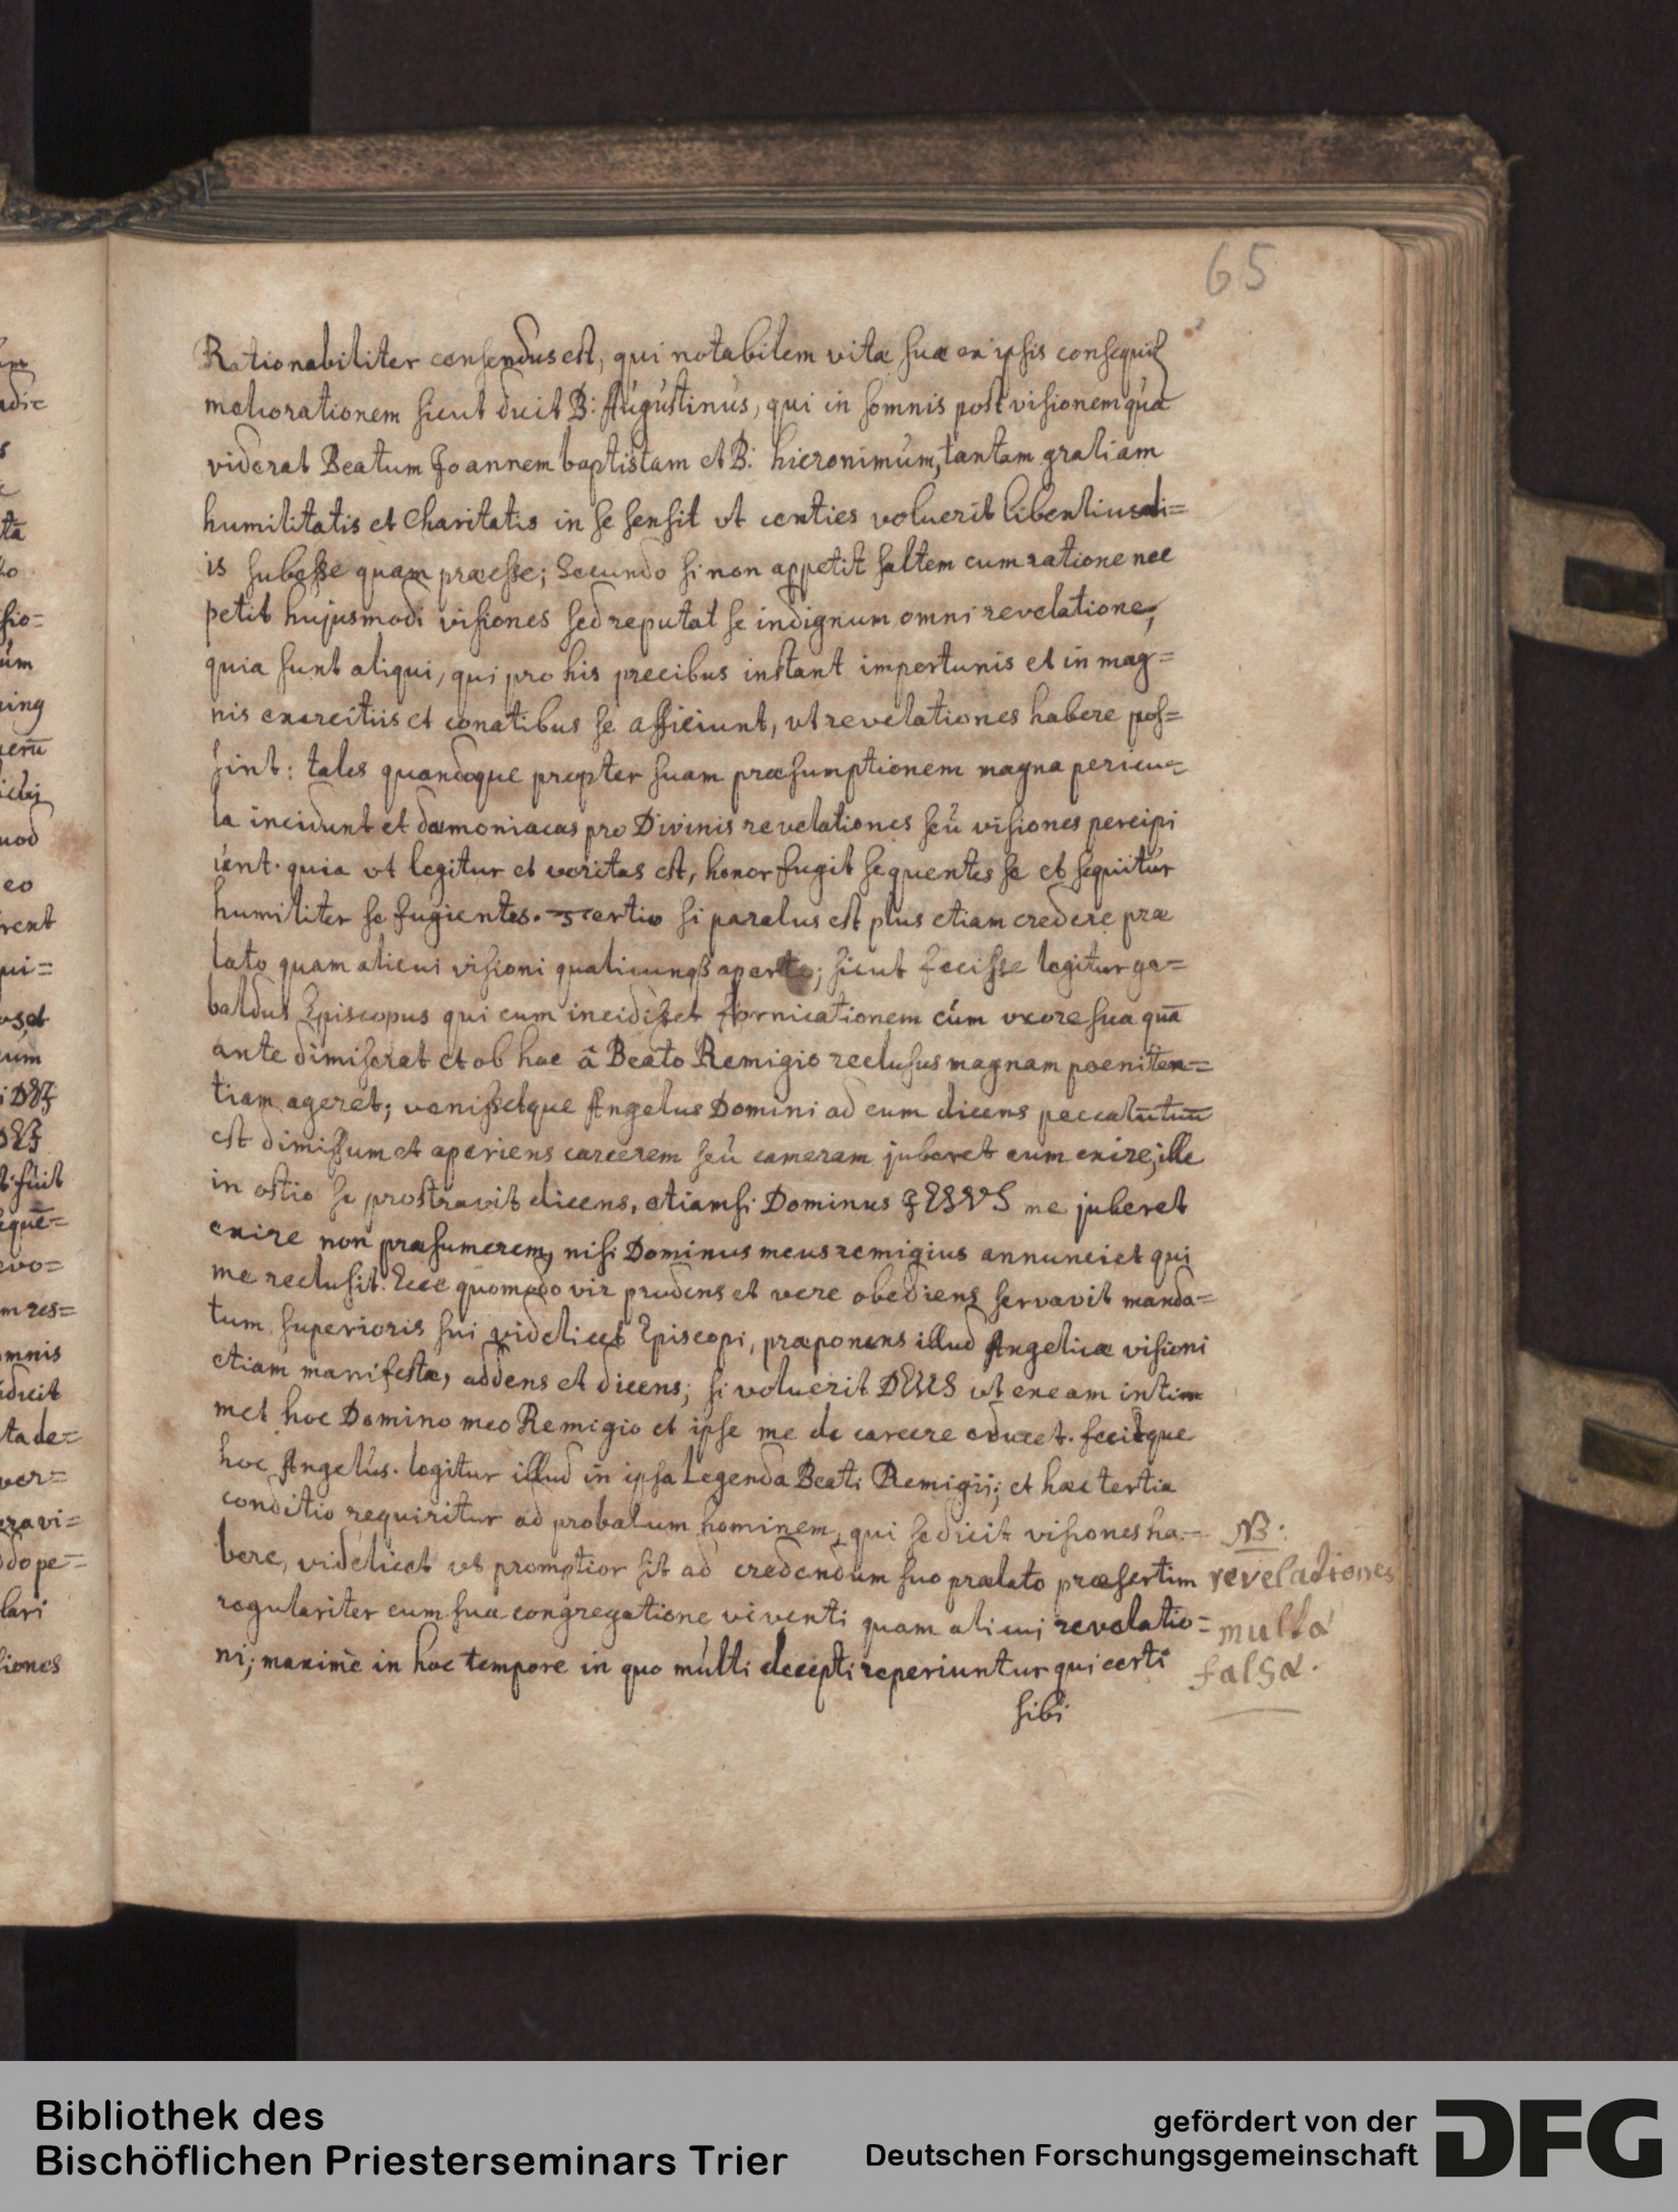 65
Rationabiliter censendus est, qui notabilem vitæ suæ ex ipsis consequit̃
meliorationem sicut dicit B: Augustinus, qui in somnis post visionem quã
viderat Beatum Joannem baptistam et B: hieronimum, tantam gratiam
humilitatis et Charitatis in se sensit ut centies voluerit libentius ali=
is subesse quam præesse; Secundo si non appetit saltem cum ratione nec
petit hujusmodi visiones sed reputat se indignum omni revelatione,
quia sunt aliqui, qui pro his precibus instant importunis et in mag=
nis exercitiis et conatibus se afficiunt, ut revelationes habere pos=
sint: tales quandoque propter suam præsumptionem magna pericu=
la incidunt et dæmoniacas pro Divinis revelationes seu visiones percipi
unt. quia ut legitur et veritas est, honor fugit sequentes se et sequitur
humiliter se fugientes. Tertio si paratus est plus etiam credere præ
lato quam alicui visioni qualicunqß apertæ; sicut fecisse legitur ge=
baldus Episcopus qui cum incidisset fornicationem cum uxore sua quã
ante dimiserat et ob hoc â Beato Remigio reclusus magnam poeniten=
tiam ageret; venissetque Angelus Domini ad eum dicens peccatũ tuũ
est dimissum et aperiens carcerem seu cameram juberet eum exire, ille
in ostio se prostravit dicens, etiamsi Dominus JESUS me juberet
exire non præsumerem, nisi Dominus meus remigius annunciet qui
me reclusit. Ecce quomodo vir prudens et vere obediens servavit manda=
tum superioris sui videlicet Episcopi, præponens illud Angelicæ visioni
etiam manifestæ, addens et dicens; si voluerit DEUS ut exeam inti
met hoc Domino meo Remigio et ipse me de carcere educet. fecitque
hoc Angelus. legitur illud in ipsa Legenda Beati Remigii; et hæc tertia
conditio requiritur ad probatum hominem, qui se dicit visiones ha=
bere, videlicet ut promptior sit ad credendum suo prælato præsertim
regulariter cum sua congregatione viventi quam alicui revelatio=
ni; maximè in hoc tempore in quo multi decepti reperiuntur qui certi
sibi
NB:
revelationes
multa
falsa.
Bibliothek des
Bischöflichen Priesterseminars Trier
gefördert von der
Deutschen Forschungsgemeinschaft
DFG